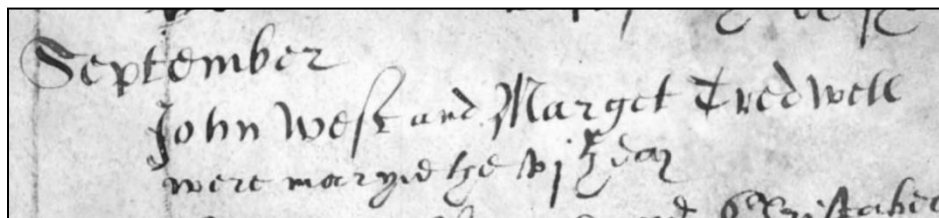 September
John West and Marget Tredwell
were maryed the vjth day